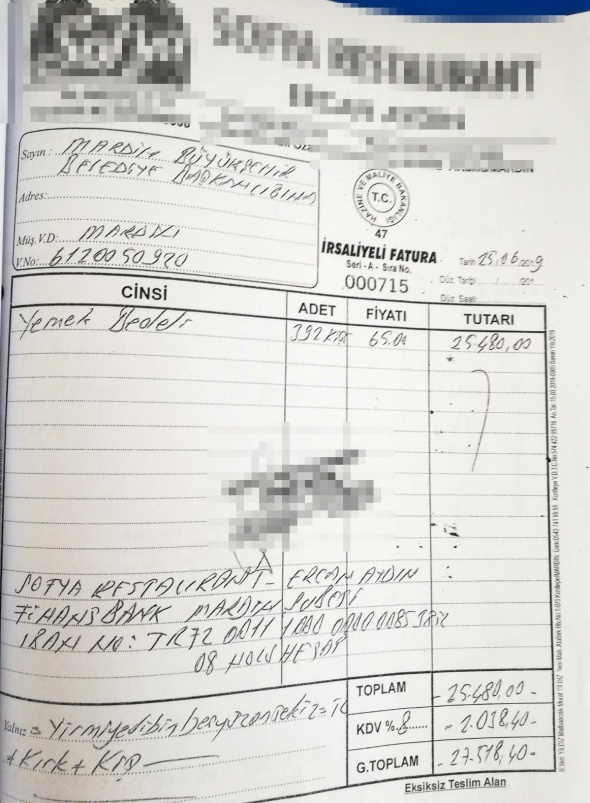 SOFYA RESTAURANT
ERCAN AYDIN
Sayın : MARDİN BÜYÜKŞEHİR
BELEDİYE BAŞKANLIĞINA
Adres:
Müş.V.D: MARDİN
V.No: 6120050920
T.C.
HAZİNE VE MALİYE BAKANLIĞI
47
İRSALİYELİ FATURA
Seri - A - Sıra No.
000715
Tarih 25/06/2019
Düz. Tarihi / /201
Düz. Saati
CİNSİ ADET FİYATI TUTARI
Yemek Bedeli 392 65.00 25.480,00
SOFYA RESTAURANT - ERCAN AYDIN
FİNANSBANK MARDİN ŞUBESİ
IBAN NO: TR72 0011 1000 0000 0085
08 NOLU HESAP
TOPLAM - 25.480,00 -
KDV %.8 - 2.038,40 -
G.TOPLAM - 27.518,40 -
Yalnız = Yirmiyedibin beşyüzonsekiz = TL
+ Kırk + Krş
Eksiksiz Teslim Alan